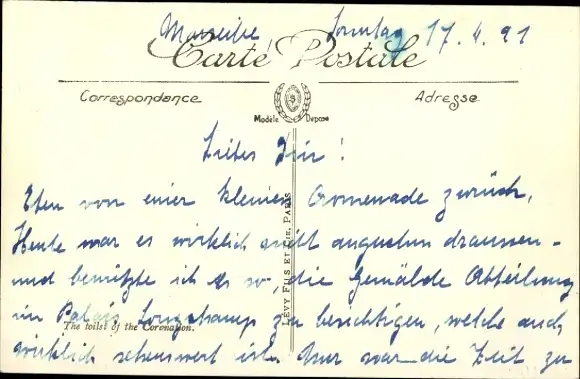 Marseille Sonntag 17.4.21
Carte Postale
Correspondance
Adresse
Modèle Déposé
Liebes
Eben von einer kleinen Promenade zurück,
Heute war es wirklich nicht draussen -
und benützte ich es so, die Gemälde Abteilung
im Palais Longchamp zu besichtigen, welche auch
wirklich sehenswert ist. Nur war die Zeit zu
The toilet of the Coronation.
LÉVY FILS ET CIE, PARIS